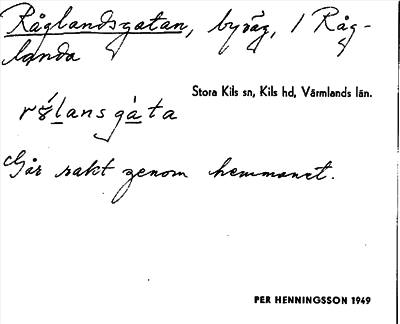 Råglandsgatan, byväg, i Råg-
landa
Stora Kils sn, Kils hd, Värmlands län.
Går rakt genom hemmanet.
PER HENNINGSSON 1949